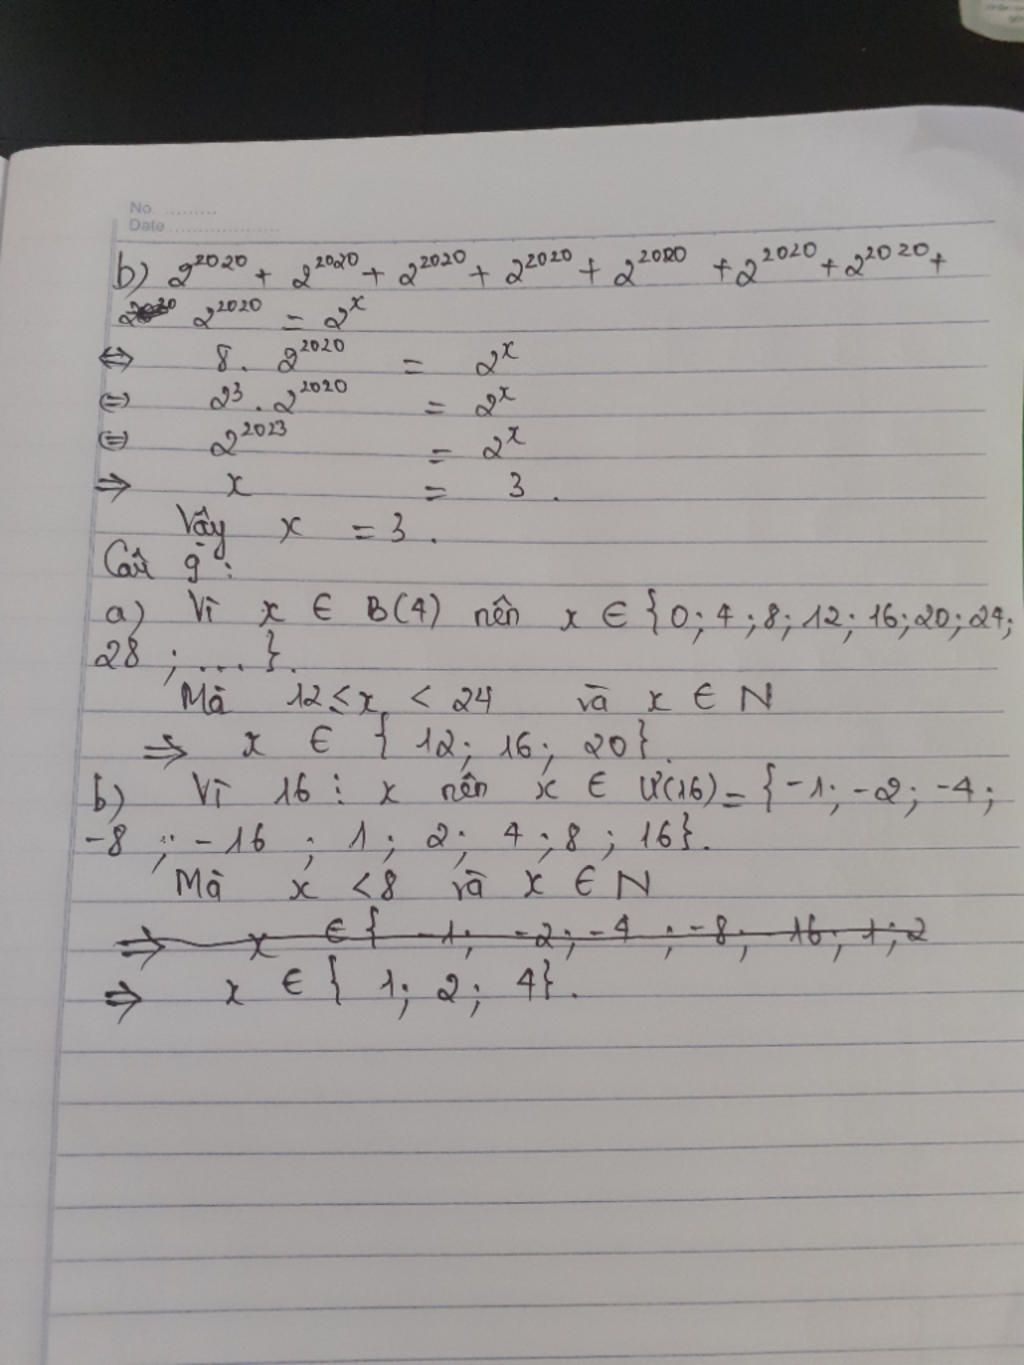 No. .........
Date ....................
b) 2²⁰²⁰ + 2²⁰²⁰ + 2²⁰²⁰ + 2²⁰²⁰ + 2²⁰²⁰ + 2²⁰²⁰ + 2²⁰²⁰ +
2²⁰²⁰ = 2ˣ
⇔ 8 . 2²⁰²⁰ = 2ˣ
⇔ 2³ . 2²⁰²⁰ = 2ˣ
⇔ 2²⁰²³ = 2ˣ
⇒ x = 3 .
Vậy x = 3 .
Câu 9 :
a) Vì x ∈ B(4) nên x ∈ {0; 4; 8; 12; 16; 20; 24;
28 ; ... }.
Mà 12 ≤ x < 24 và x ∈ N
⇒ x ∈ { 12; 16; 20}.
b) Vì 16 ⋮ x nên x ∈ Ư(16) = {-1; -2; -4;
-8 ; -16 ; 1 ; 2; 4 ; 8 ; 16}.
Mà x < 8 và x ∈ N
⇒ x ∈ { -1; -2; -4 ; -8; 16; 1; 2
⇒ x ∈ { 1; 2; 4}.